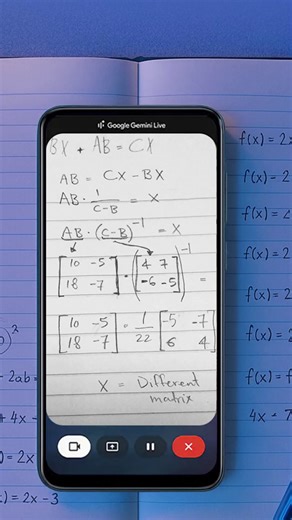 Google Gemini Live
BX + AB = CX
AB = CX - BX
AB · 1/(C-B) = X
AB · (C-B)⁻¹ = X
[10 -5] · ([4 7])⁻¹ =
[18 -7] ([-6 -5])
[10 -5] · 1/22 [-5 -7]
[18 -7] [6 4]
X = Different
matrix
f(x) = 2
f(x) = 2
f(x) =
f(x) = 2
f(x) = 2
f(x) = 2
f(x) = f
4x =
)²
- 2ab =
+ 4x -
= 2x
) = 2x - 3